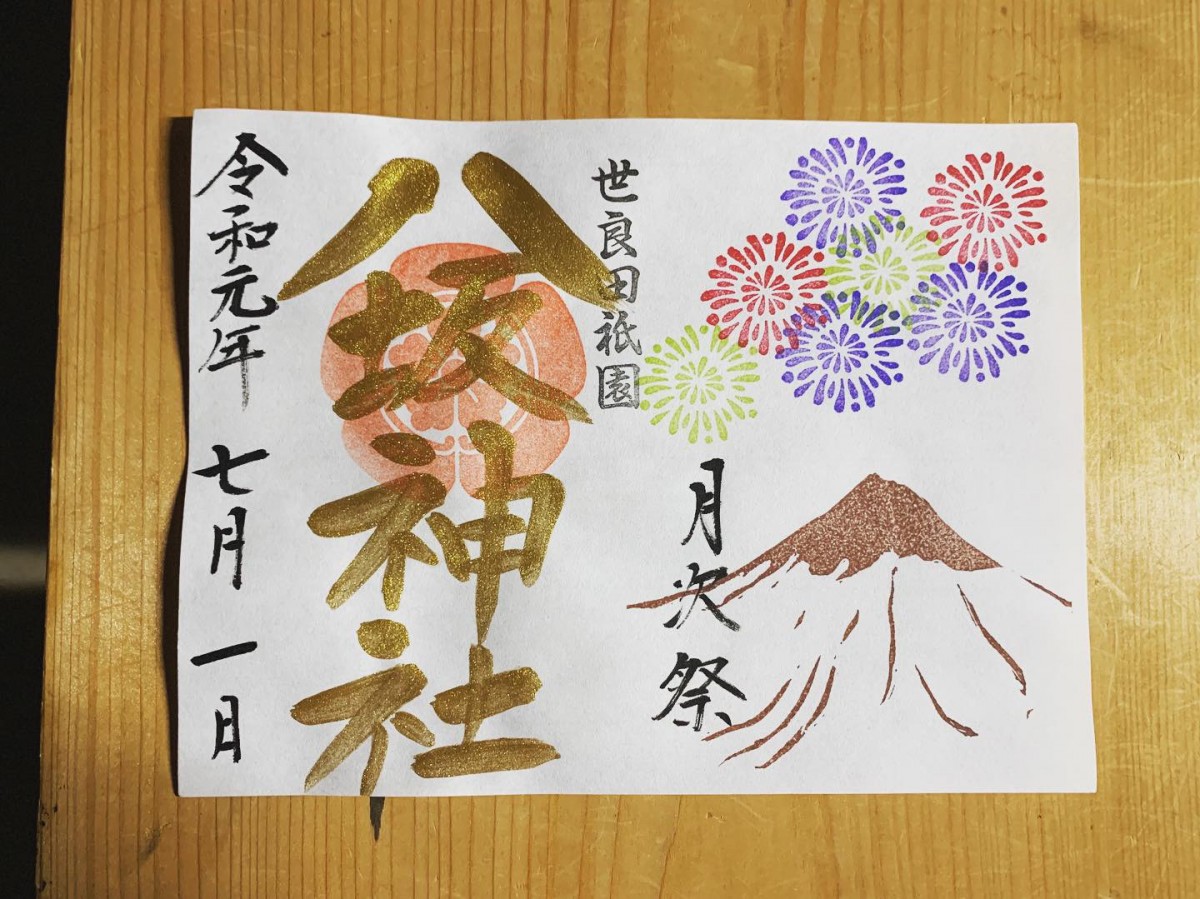 月次祭
世良田祇園
八坂神社
令和元年 七月 一日